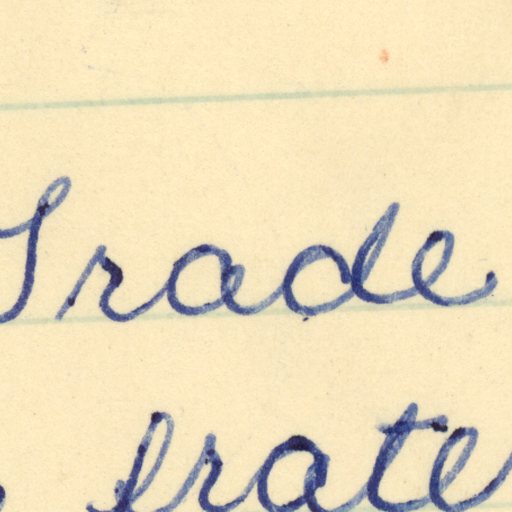 Grade
frate